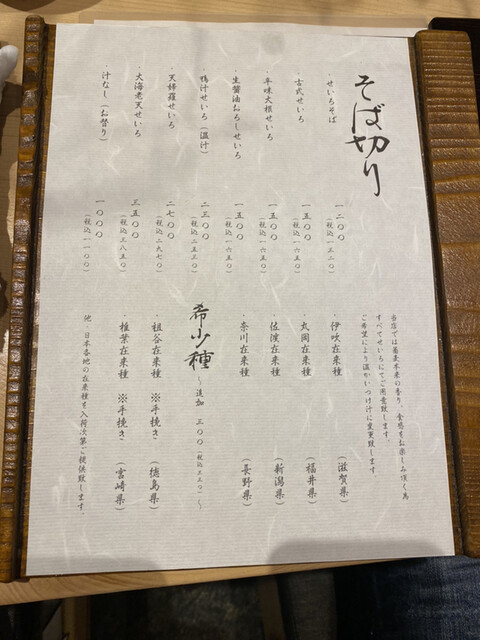 そば切り
・せいろそば 一二〇〇
(税込一三二〇)
・古式せいろ 一五〇〇
(税込一六五〇)
・辛味大根せいろ 一五〇〇
(税込一六五〇)
・生醤油おろしせいろ 一五〇〇
(税込一六五〇)
・鴨汁せいろ(温汁) 二三〇〇
(税込二五三〇)
・天婦羅せいろ 二七〇〇
(税込二九七〇)
・大海老天せいろ 三五〇〇
(税込三八五〇)
・汁なし(お替り) 一〇〇〇
(税込一一〇〇)
当店では蕎麦本来の香り、食感をお楽しみ頂く為
すべてせいろにてご用意致します。
ご希望により温かいつけ汁に変更致します。
・伊吹在来種 (滋賀県)
・丸岡在来種 (福井県)
・佐渡在来種 (新潟県)
・奈川在来種 (長野県)
希少種 ～追加 三〇〇(税込三三〇)～
・祖谷在来種 ※手挽き (徳島県)
・椎葉在来種 ※手挽き (宮崎県)
他、日本各地の在来種を入荷次第ご提供致します。